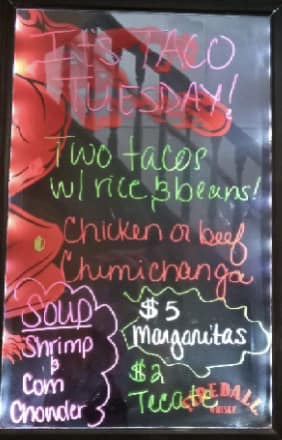 IT'S TACO
TUESDAY!
Two tacos
w/ rice & beans!
Chicken or beef
Chimichanga
SOUP
Shrimp
&
Corn
Chowder
$5
Margaritas
$2
Tecate
FIREBALL
WHISKY